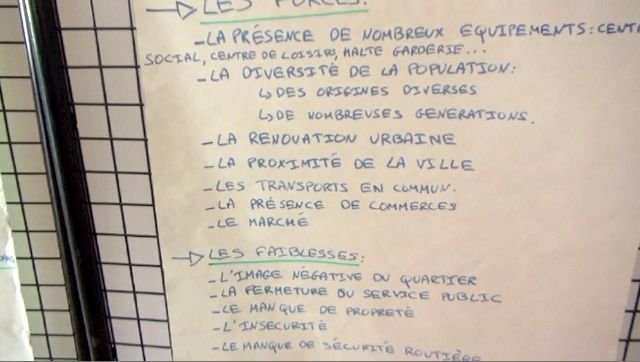 → LES FORCES:
- LA PRÉSENCE DE NOMBREUX EQUIPEMENTS: CENT
SOCIAL, CENTRE DE LOISIRS, HALTE GARDERIE...
- LA DIVERSITÉ DE LA POPULATION:
↳ DES ORIGINES DIVERSES
↳ DE NOMBREUSES GENERATIONS.
- LA RENOVATION URBAINE
- LA PROXIMITÉ DE LA VILLE
- LES TRANSPORTS EN COMMUN.
- LA PRÉSENCE DE COMMERCES
- LE MARCHÉ
→ LES FAIBLESSES:
- L'IMAGE NÉGATIVE DU QUARTIER
- LA FERMETURE DU SERVICE PUBLIC
- LE MANQUE DE PROPRETÉ
- L'INSECURITÉ
- LE MANQUE DE SÉCURITÉ ROUTIÈRE